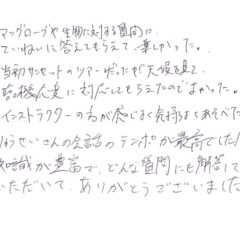 マングローブや生物に対する質問に
ていねいに答えてもらえて楽しかった。
当初サンセットのツアーだったが天候を見て
臨機応変に対応してもらえたのでよかった。
インストラクターの方が感じよく気持ちよくあそべた
りゅうせいさんの会話のテンポが最高でした!
知識が豊富で、どんな質問にも解答して
いただいて、ありがとうございました